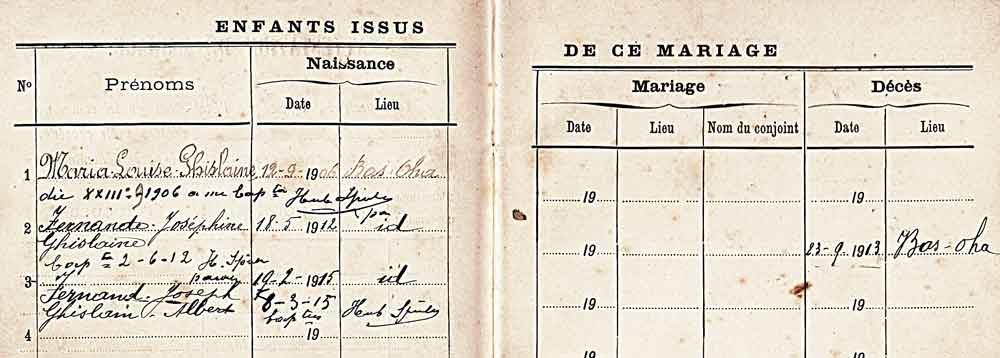 ENFANTS ISSUS
DE CE MARIAGE
No Prénoms Naissance
Date Lieu
Mariage Décès
Date Lieu Nom du conjoint Date Lieu
1 Maria Louise Ghislaine 12-9-1906 Bas-Oha
die XXIII 9 1906 a me bap
19 19
2 Fernande Joséphine 18-5 1912 id
Ghislaine
23-9-1913 Bas-oha
19
bap 2-6-12 H.
3 19-2-1915 id
Fernand Joseph 8-3-15
Ghislain Albert
19 19
4 19
19 19